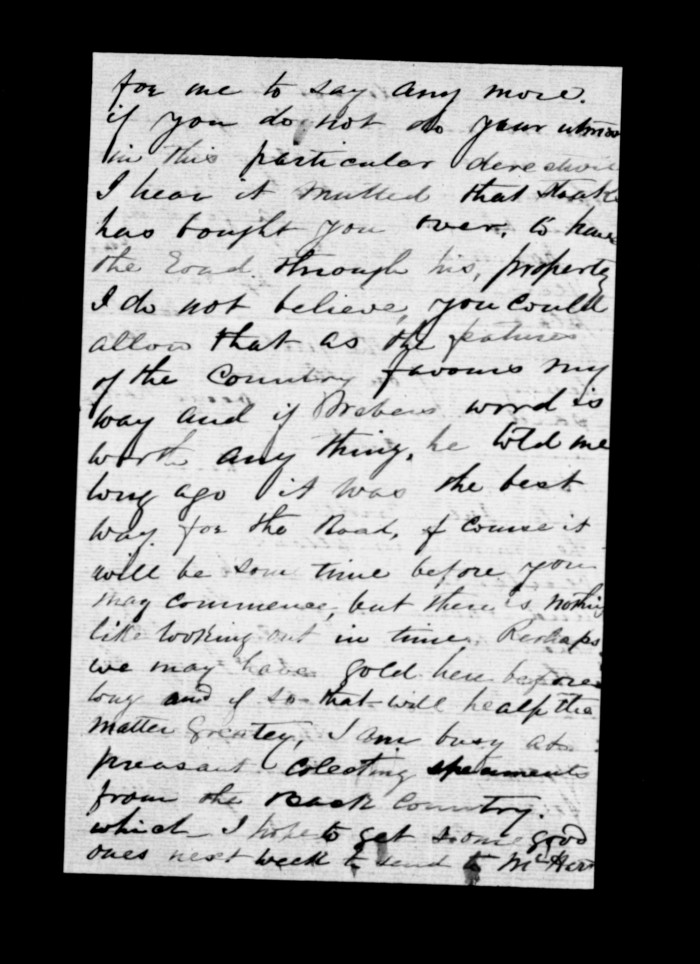 for me to say any more.
if you do not do your utmos
in this particular derection
I hear it mutted that
has bought you over, to have
the Road through his, property
I do not believe, you could
allow that as the features
of the Country favours my
way and if word is
worth any thing, he told me
long ago it was the best
way for the Road, of course it
will be som time before you
may commence, but there is nothing
like looking out in time. Perhaps
we may have gold here before
long and if so that will healp the
matter greatey, I am busy at
preasant colecting speciments
from the Back Country.
which I hope to get some good
ones next week to send to Mc